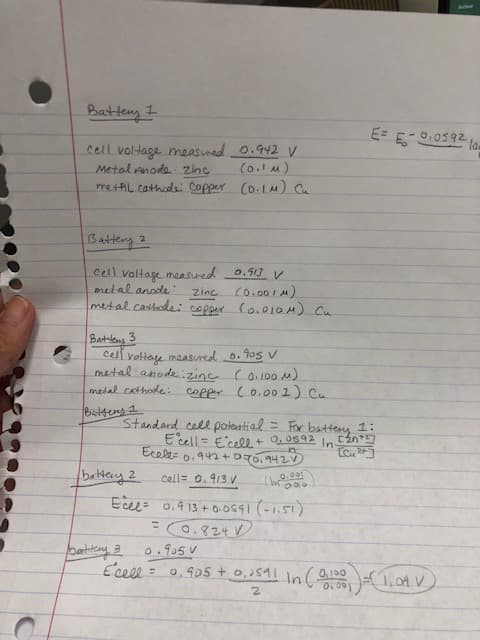 Battery 1
E = E₀ - 0.0592
cell voltage measured 0.942 V
Metal Anode: zinc (0.1 M)
metal cathode: copper (0.1M) Cu
Battery 2
cell voltage measured 0.913 V
metal anode: zinc (0.001M)
metal cathode: copper (0.010M) Cu
Battery 3
cell voltage measured 0.905 V
metal anode: zinc (0.100 M)
metal cathode: copper (0.001) Cu
Battery 1
Standard cell potential = For battery 1:
E°cell = E°cell + 0.0592/n ln [Zn+2]/[Cu2+]
Ecell = 0.942 + 0 = 0.942V
battery 2 cell = 0.913V (ln 0.001/0.010)
E°cell = 0.913 + 0.0591 (-1.51)
= 0.824 V
battery 3 0.905 V
E°cell = 0.905 + 0.0591/2 ln (0.100/0.001) = 1.04 V